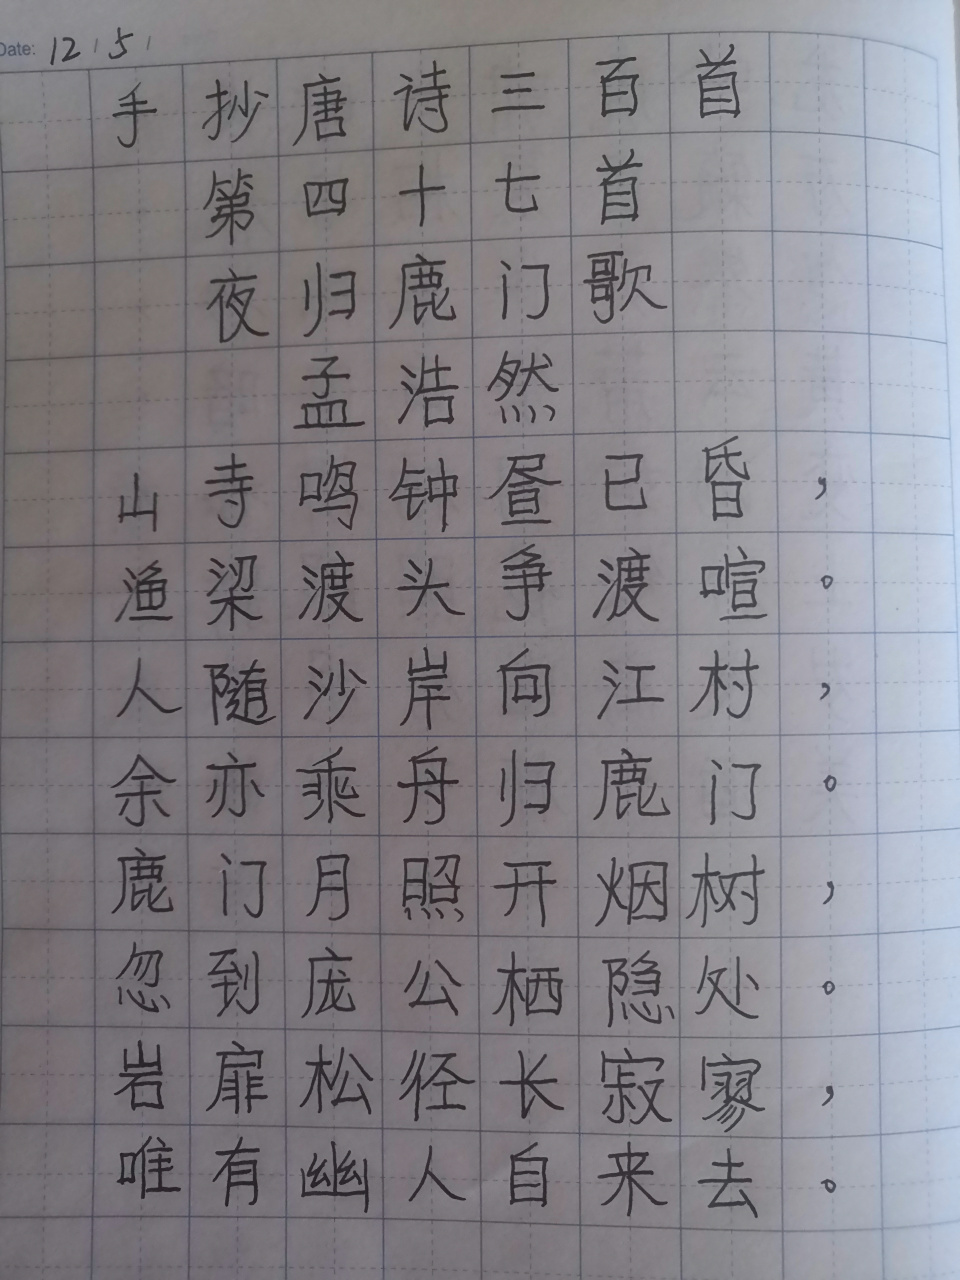 Date: 12 / 5 /
手抄唐诗三百首
第四十七首
夜归鹿门歌
孟浩然
山寺鸣钟昼已昏，
渔梁渡头争渡喧。
人随沙岸向江村，
余亦乘舟归鹿门。
鹿门月照开烟树，
忽到庞公栖隐处。
岩扉松径长寂寥，
唯有幽人自来去。